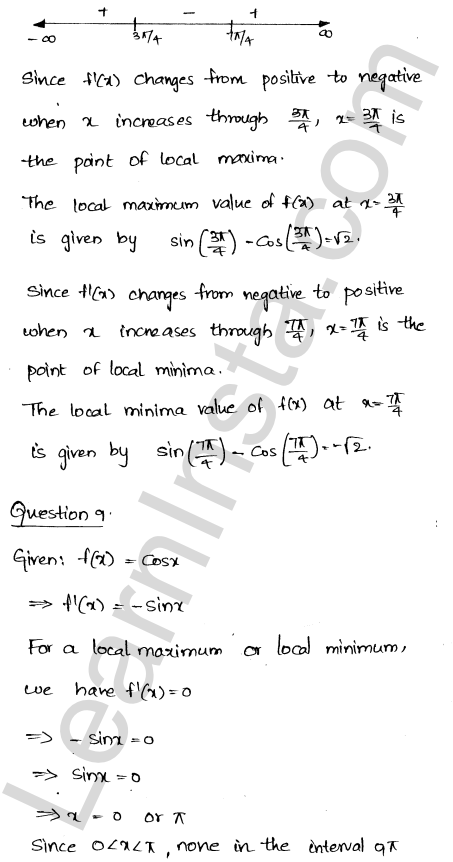 + − +
-∞ 3π/4 7π/4 ∞
Since f'(x) changes from positive to negative
when x increases through 3π/4, x=3π/4 is
the point of local maxima.
The local maximum value of f(x) at x=3π/4
is given by sin(3π/4) - cos(3π/4)=√2.
Since f'(x) changes from negative to positive
when x increases through 7π/4, x=7π/4 is the
point of local minima.
The local minima value of f(x) at x=7π/4
is given by sin(7π/4) - cos(7π/4)=-√2.
Question 9.
Given: f(x) = cosx
⇒ f'(x) = -sinx
For a local maximum or local minimum,
we have f'(x)=0
⇒ -sinx=0
⇒ sinx=0
⇒ x = 0 or π
Since 0<x<π, none in the interval 9π
LearnInsta.com